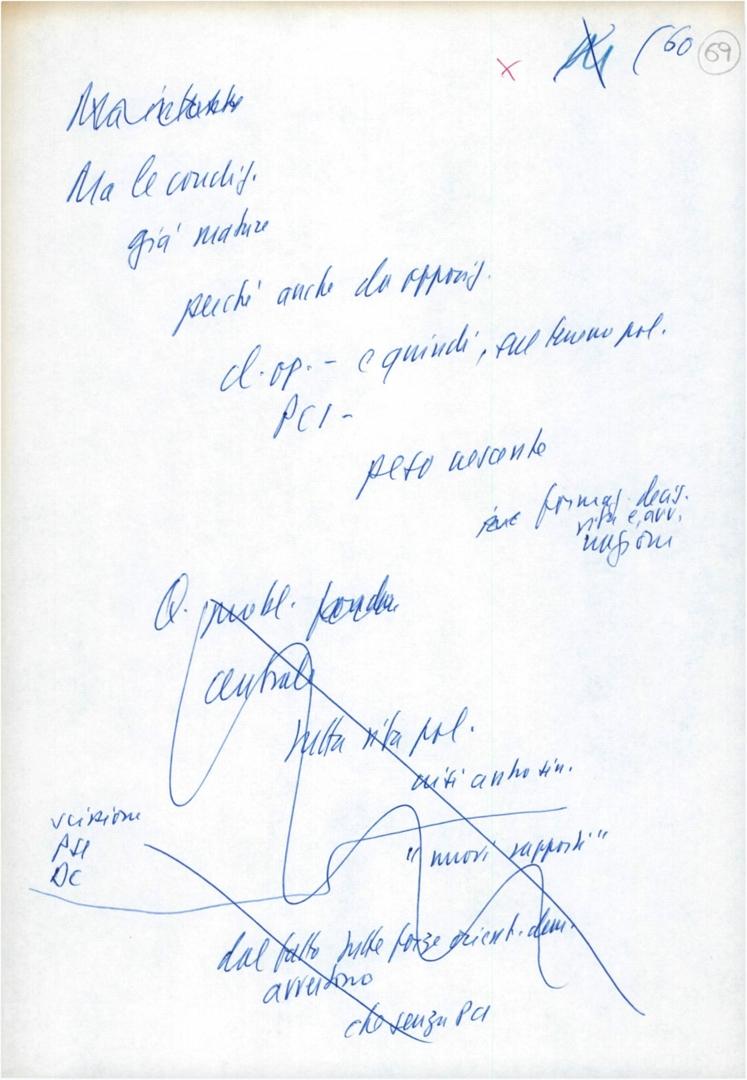 (60 69
Ma
Ma le condiz.
già mature
perché anche da opposiz.
cl. op. - e quindi, sul terreno pol.
PCI -
peso crescente
formaz. decis.
vita e, avv.
nazione
Q. probl. fondam
centrale
tutta vita pol.
crisi centro sin.
scissione
PSI
DC
"nuovi rapporti"
dal fatto tutte forze orient. dem.
avvertono
che senza PCI